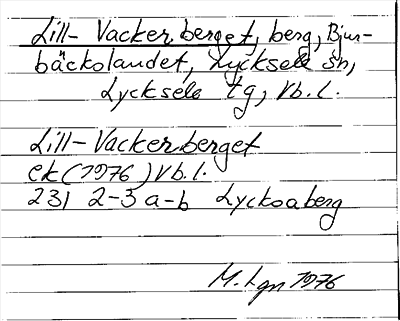 Lill-Vackerberget, berg, Bjur-
bäckslandet, Lycksele sn,
Lycksele tg, Vb.l.
Lill-Vackerberget
ek (1976) Vb.l.
23I 2-3 a-b Lycksaberg
M. Lgn 1976